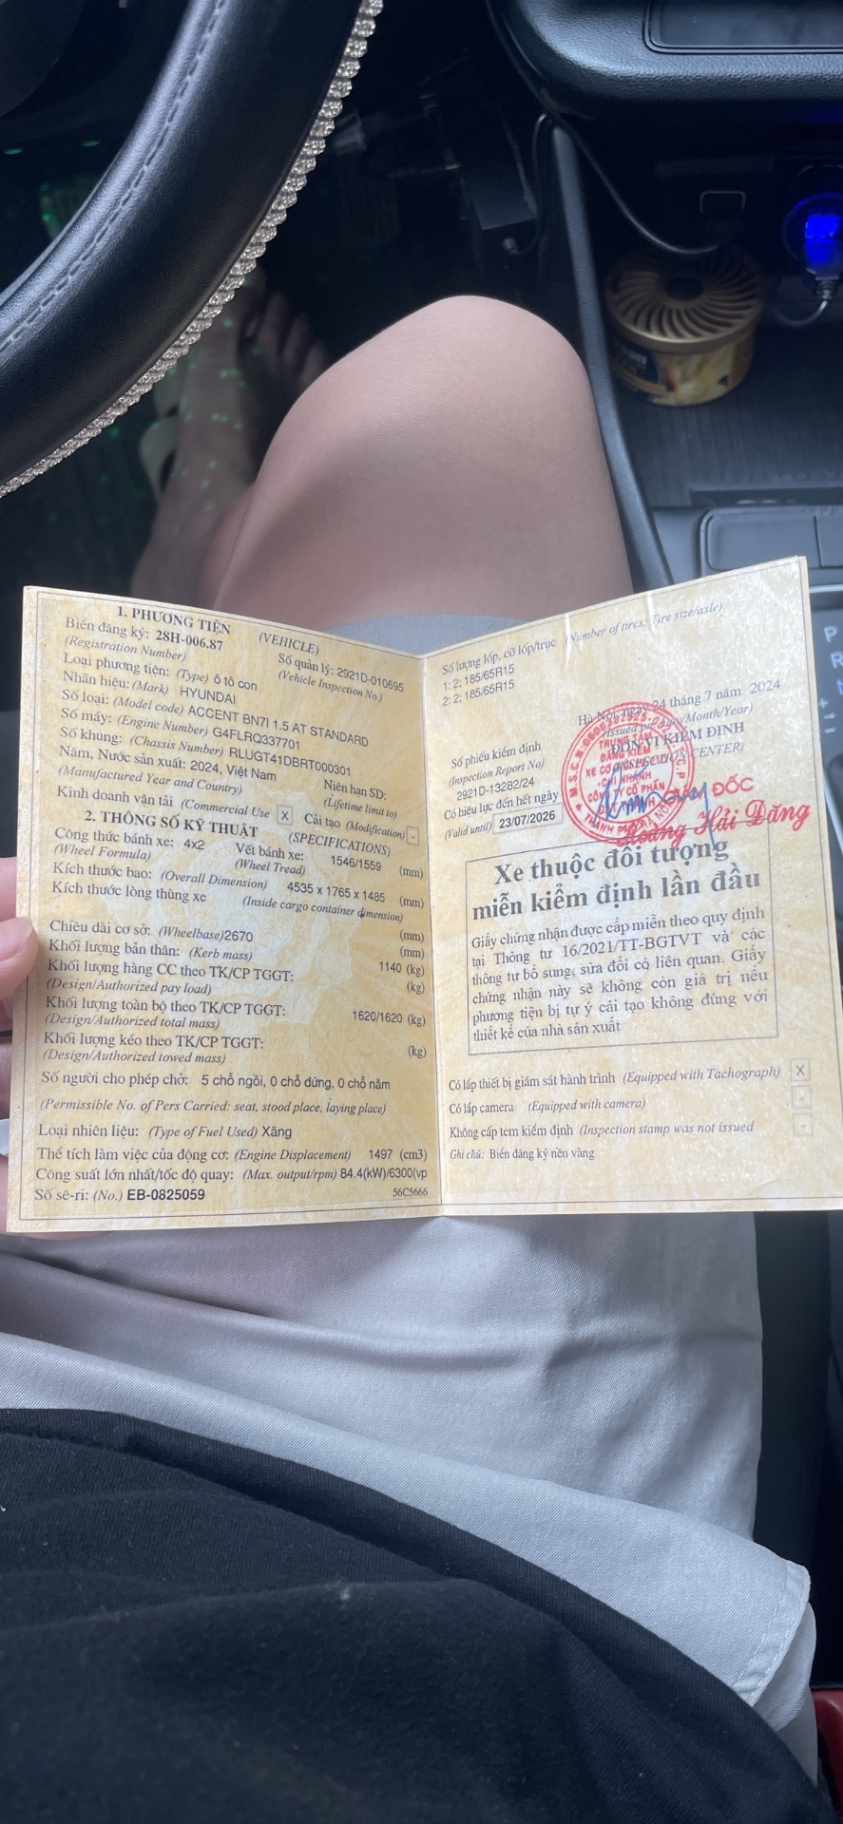 1. PHƯƠNG TIỆN (VEHICLE)
Biển đăng ký: 28H-006.87
(Registration Number)
Số quản lý: 2921D-010695
(Vehicle Inspection No.)
Loại phương tiện: (Type) ô tô con
Nhãn hiệu: (Mark) HYUNDAI
Số loại: (Model code) ACCENT BN7I 1.5 AT STANDARD
Số máy: (Engine Number) G4FLRQ337701
Số khung: (Chassis Number) RLUGT41DBRT000301
Năm, Nước sản xuất: 2024, Việt Nam
(Manufactured Year and Country)
Niên hạn SD:
(Lifetime limit to)
Kinh doanh vận tải (Commercial Use X Cải tạo (Modification) -
2. THÔNG SỐ KỸ THUẬT (SPECIFICATIONS)
Công thức bánh xe: 4x2
(Wheel Formula)
Vết bánh xe: 1546/1559 (mm)
(Wheel Tread)
Kích thước bao: (Overall Dimension) 4535 x 1765 x 1485 (mm)
Kích thước lòng thùng xe (Inside cargo container dimension)
(mm)
Chiều dài cơ sở: (Wheelbase)2670 (mm)
Khối lượng bản thân: (Kerb mass) 1140 (kg)
Khối lượng hàng CC theo TK/CP TGGT: (kg)
(Design/Authorized pay load)
Khối lượng toàn bộ theo TK/CP TGGT: 1620/1620 (kg)
(Design/Authorized total mass)
Khối lượng kéo theo TK/CP TGGT: (kg)
(Design/Authorized towed mass)
Số người cho phép chở: 5 chỗ ngồi, 0 chỗ đứng, 0 chỗ nằm
(Permissible No. of Pers Carried: seat, stood place, laying place)
Loại nhiên liệu: (Type of Fuel Used) Xăng
Thể tích làm việc của động cơ: (Engine Displacement) 1497 (cm3)
Công suất lớn nhất/tốc độ quay: (Max. output/rpm) 84.4(kW)/6300(vp
Số sê-ri: (No.) EB-0825059 56C5666
Số lượng lốp, cỡ lốp/trục (Number of tires; Tire size/axle)
1: 2; 185/65R15
2: 2; 185/65R15
24 tháng 7 năm 2024
ĐƠN VỊ KIỂM ĐỊNH
Số phiếu kiểm định
(Inspection Report No)
2921D-13282/24
Có hiệu lực đến hết ngày
(Valid until) 23/07/2026
GIÁM ĐỐC
Hoàng Hải Đăng
Xe thuộc đối tượng
miễn kiểm định lần đầu
Giấy chứng nhận được cấp miễn theo quy định
tại Thông tư 16/2021/TT-BGTVT và các
thông tư bổ sung, sửa đổi có liên quan. Giấy
chứng nhận này sẽ không còn giá trị nếu
phương tiện bị tự ý cải tạo không đúng với
thiết kế của nhà sản xuất
Có lắp thiết bị giám sát hành trình (Equipped with Tachograph) X
Có lắp camera (Equipped with camera) -
Không cấp tem kiểm định (Inspection stamp was not issued -
Ghi chú: Biển đăng ký nền vàng
P
R